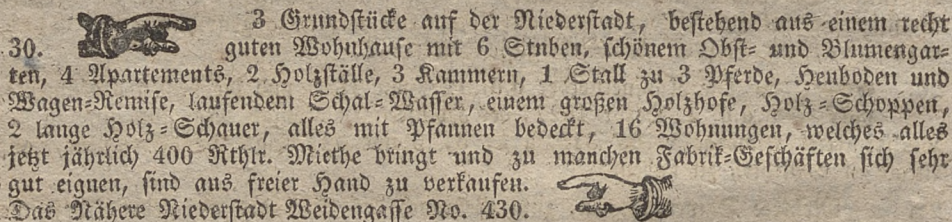 3 Grundstücke auf der Niederstadt, bestehend aus einem recht
30. guten Wohnhause mit 6 Stuben, schönem Obst- und Blumengar-
ten, 4 Apartements, 2 Holzställe, 3 Kammern, 1 Stall zu 3 Pferde, Heuboden und
Wagen-Remise, laufendem Schal-Wasser, einem großen Holzhofe, Holz-Schoppen,
2 lange Holz-Schauer, alles mit Pfannen bedeckt, 16 Wohnungen, welches alles
jetzt jährlich 400 Rthlr. Miethe bringt und zu manchen Fabrik-Geschäften sich sehr
gut eignen, sind aus freier Hand zu verkaufen.
Das Nähere Niederstadt Weidengasse No. 430.